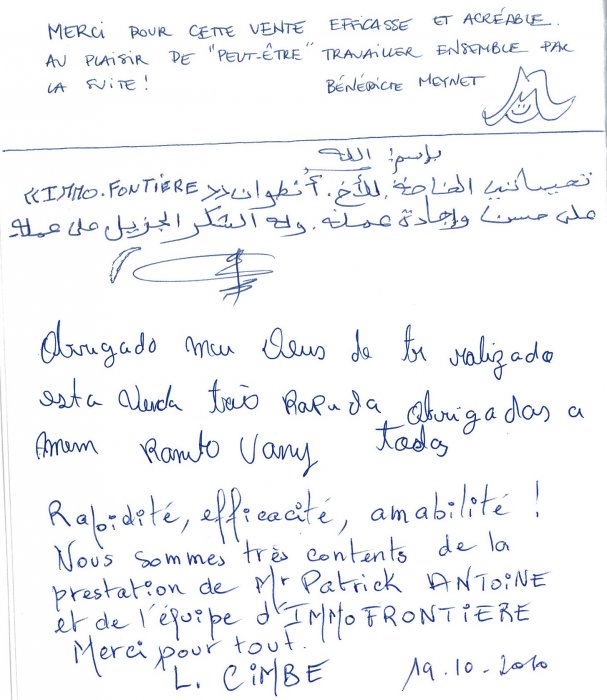 MERCI POUR CETTE VENTE EFFICASSE ET AGRÉABLE.
AU PLAISIR DE "PEUT-ÊTRE" TRAVAILLER ENSEMBLE PAR
LA SUITE !
BÉNÉDICTE MEYNET
بإسم: الله
تحياتي الخاصة. للأخ. أنطوان «IMMO.FONTIÈRE»
على حسن وإجادة عمله. وله الشكر الجزيل على عمله
Obrugado meu Deus de tr ralizado
esta Venda três Rapuda Obrigadas a
Amem Vany todos
Rapidité, efficacité, amabilité !
Nous sommes très contents de la
prestation de Mr Patrick ANTOINE
et de l'équipe d'IMMOFRONTIERE
Merci pour tout.
L. CIMBE 19.10.2010